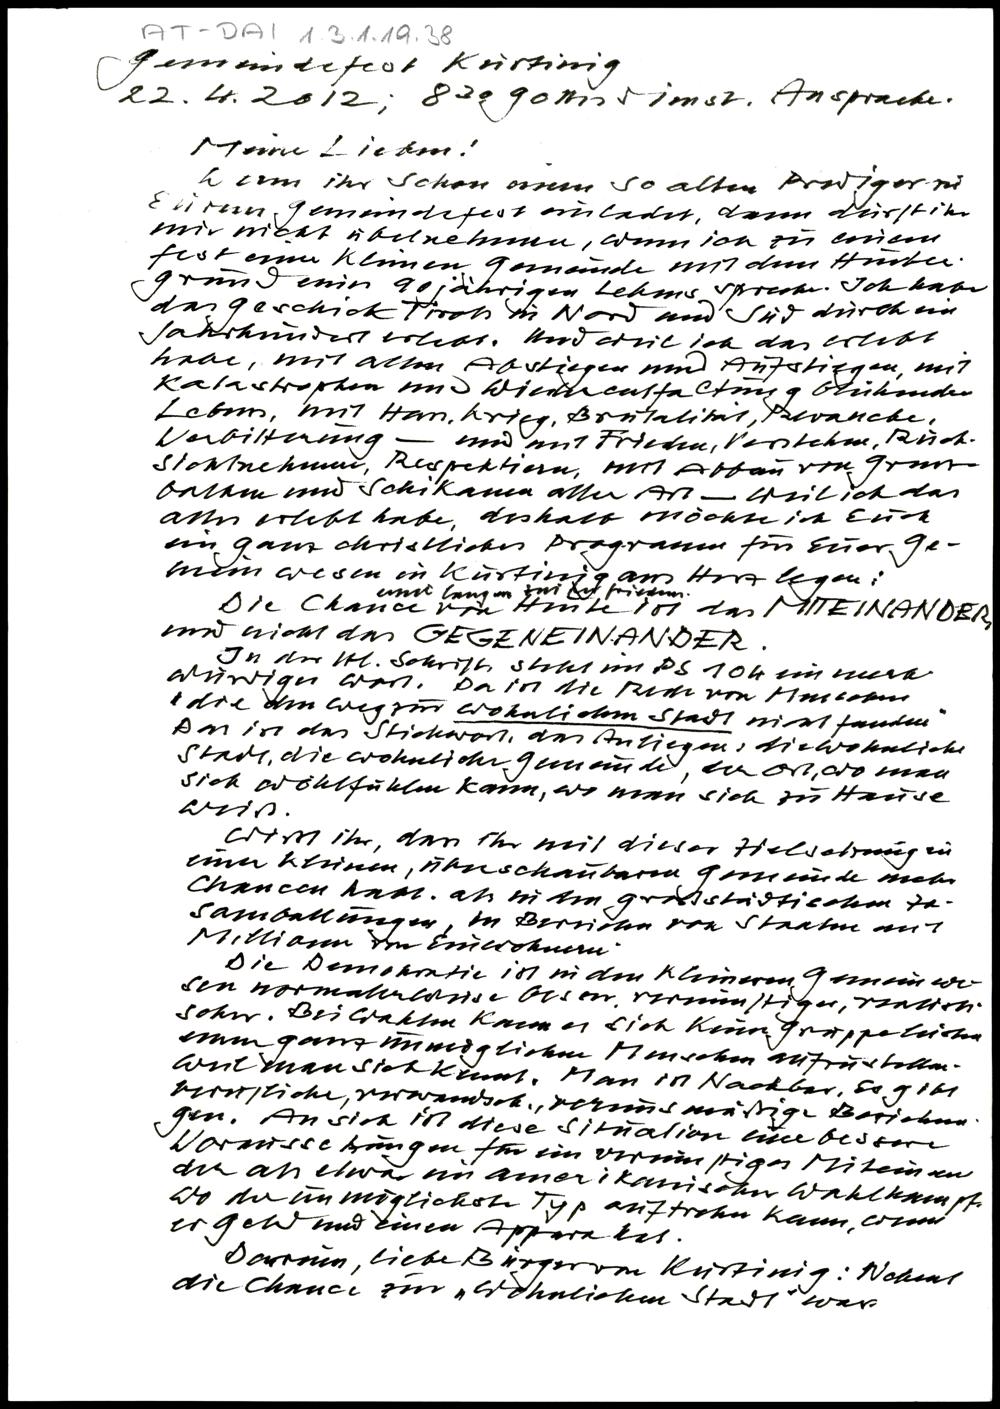 AT-DAI 1.3.1.19.38
Gemeindefest Kurtinig
22.4.2012; 8³⁰ Gottesdienst. Ansprache.
Meine Lieben!
Wenn ihr schon einen so alten Prediger zu
Eurem Gemeindefest einladet, dann dürft ihr
mir nicht übelnehmen, wenn ich zu einem
fest einer kleinen Gemeinde mit dem Hinter-
grund eines 90jährigen Lebens spreche. Ich habe
das Geschick Tirols in Nord und Süd durch ein
Jahrhundert erlebt. Und weil ich das erlebt
habe, mit allen Abstiegen und Aufstiegen, mit
Katastrophen und Wiederentfachung blühenden
Lebens, mit Hass, Krieg, Brutalität, Revanche,
Verbitterung — und mit Frieden, Verstehen, Rück-
sichtnehmen, Respektieren, mit Abbau von Grenz-
balken und Schikanen aller Art — weil ich das
alles erlebt habe, deshalb möchte ich Euch
ein ganz christliches Programm für Euer Ge-
meinwesen in Kurtinig ans Herz legen:
Die Chance von Heute ist das MITEINANDER,
und nicht das GEGENEINANDER.
In der Hl. Schrift steht im PS 104 ein merk-
würdiges Wort. Da ist die Rede von Menschen
"die den Weg zur wohnlichen Stadt nicht fanden"
Das ist das Stichwort, das Anliegen: die wohnliche
Stadt, die wohnliche Gemeinde, der Ort, wo man
sich wohlfühlen kann, wo man sich zu Hause
weiß.
Wisst ihr, dass ihr mit dieser Zielsetzung in
einer kleinen, überschaubaren Gemeinde mehr
Chancen habt. als in den großstädtischen Zu-
samballungen, in Bereichen von Staaten mit
Millionen von Einwohnern.
Die Demokratie ist in den kleineren Gemeinwe-
sen normalerweise besser, vernünftiger, realisti-
scher. Bei Wahlen kann es sich keine Gruppe leisten
einen ganz unmöglichen Menschen aufzustellen.
weil man sich kennt. Man ist Nachbar, es gibt
berufliche, verwandsch., vereinsmäßige Beziehun-
gen. An sich ist diese Situation eine bessere
Voraussetzungen für ein vernünftiges Miteinan
der als etwa ein amerikanischer Wahlkampf.
wo der unmöglichste Typ auftreten kann, wenn
er Geld und einen Apparat hat.
Darum, liebe Bürger von Kurtinig: Nehmt
die Chance zur „wohnlichen Stadt" war